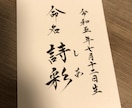 令和五年七月十二日生
命名 詩彩
しお